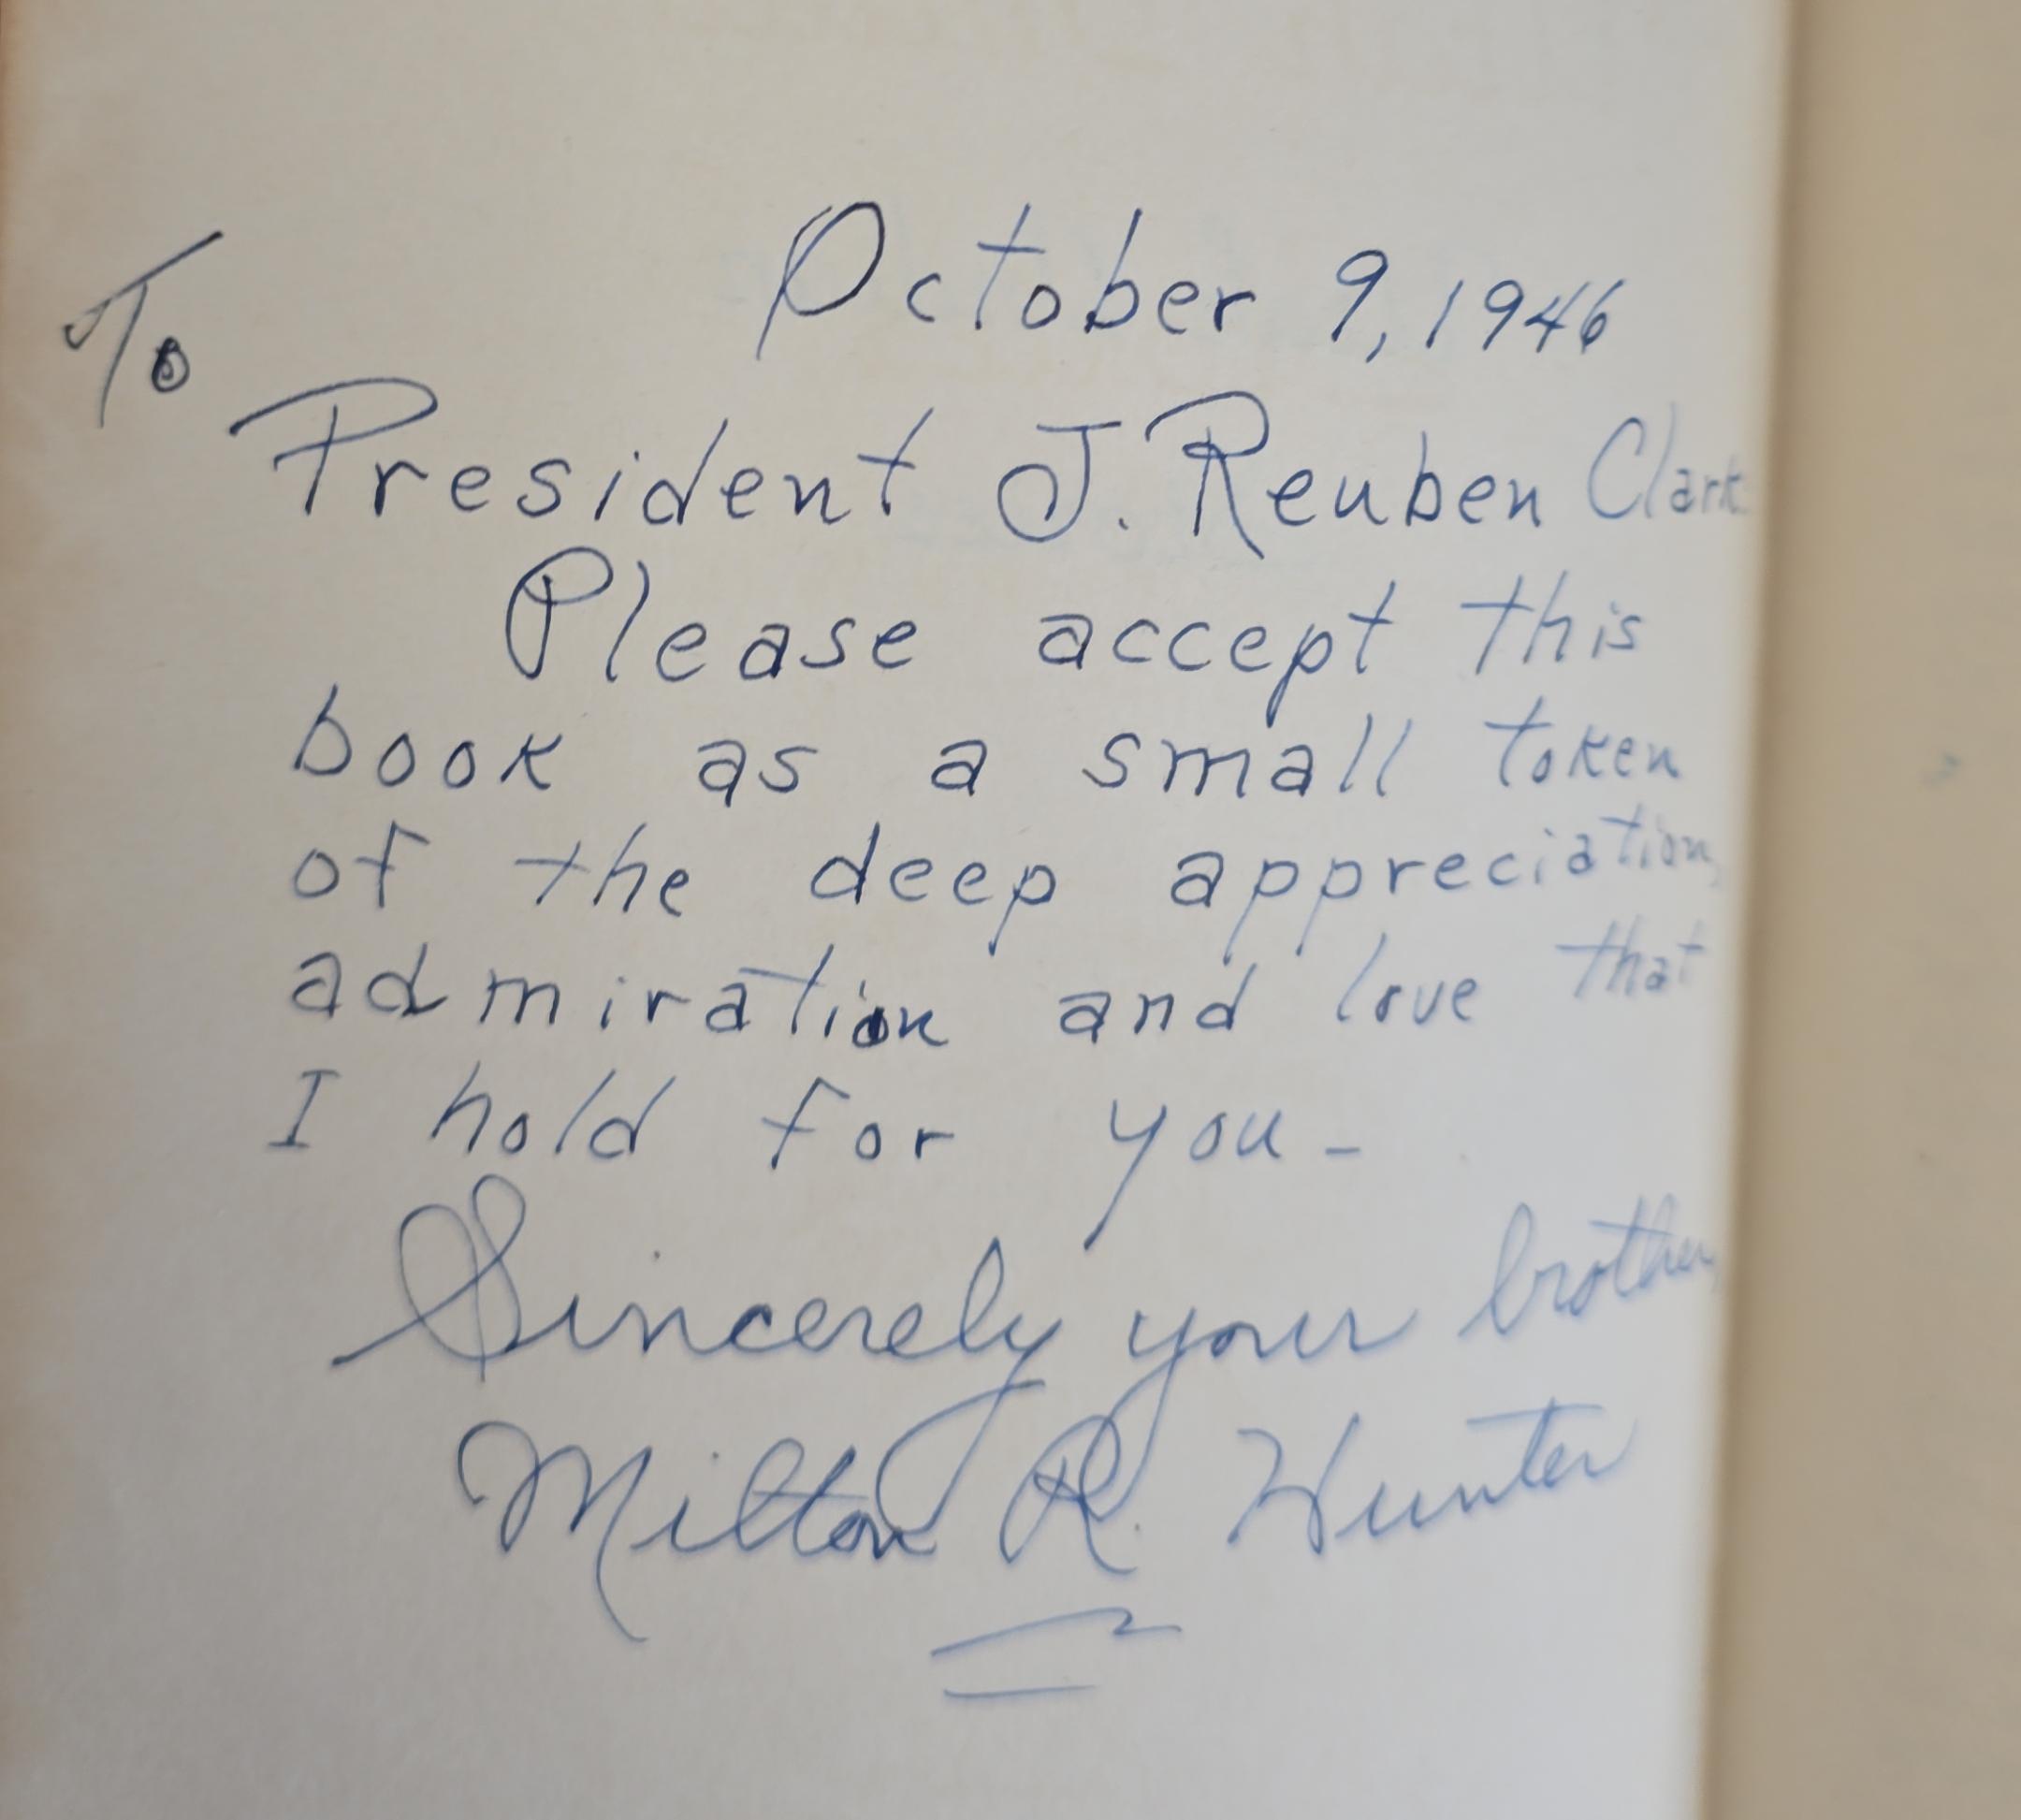 October 9, 1946
To
President J. Reuben Clark.
Please accept this
book as a small token
of the deep appreciation,
admiration and love that
I hold for you-
Sincerely your brother,
Milton R. Hunter